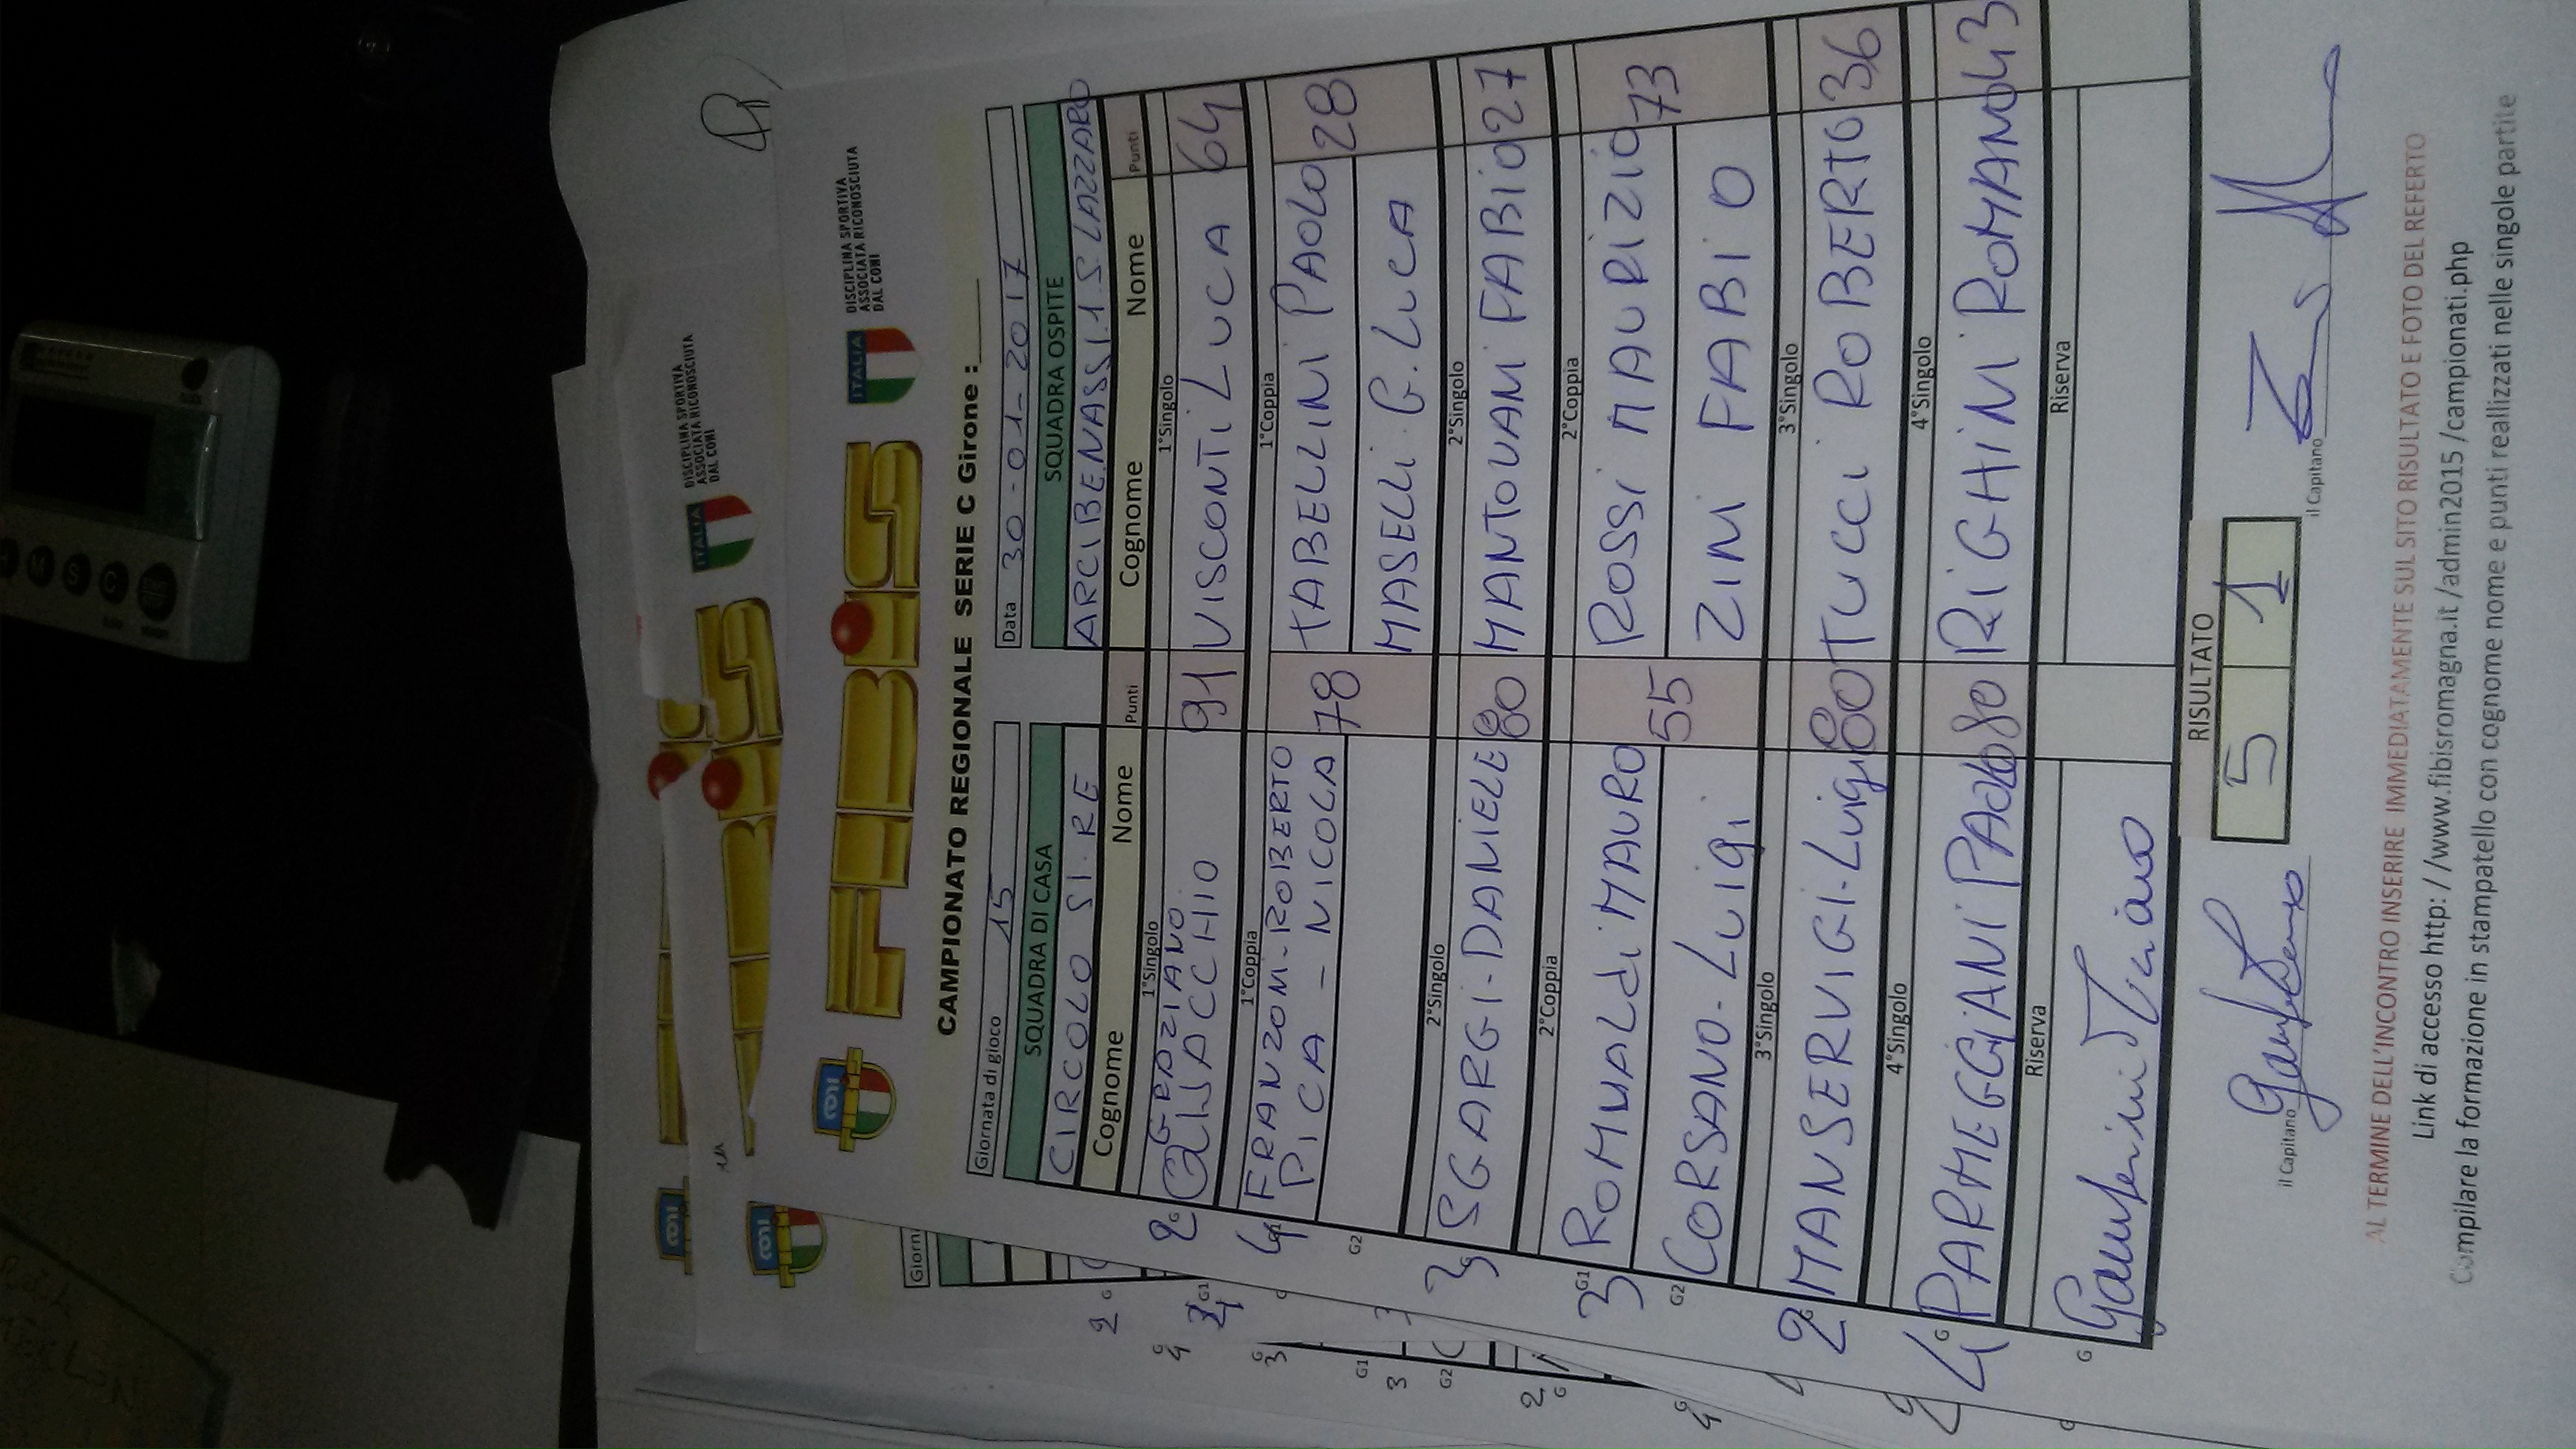 FIBiS
ITALIA
DISCIPLINA SPORTIVA
ASSOCIATA RICONOSCIUTA
DAL CONI
CAMPIONATO REGIONALE SERIE C Girone :
Giornata di gioco 15
Data 30-01-2017
SQUADRA DI CASA SQUADRA OSPITE
CIRCOLO SI.RE ARCI BENASSI.1 S.LAZZARO
Cognome Nome Punti Cognome Nome Punti
1°Singolo 1°Singolo
GRAZIANO 91 VISCONTI LUCA 64
1°Coppia 1°Coppia
FRANZONI-ROBERTO 78 TABELLINI PAOLO 28
PICA - NICOLA MASELLI G.LUCA
2°Singolo 2°Singolo
SGARGI-DANIELE 80 MANTOVANI FABIO 27
2°Coppia 2°Coppia
ROMUALDI MAURO 55 ROSSI MAURIZIO 73
CORSANO-Luigi ZINI FABIO
3°Singolo 3°Singolo
MANSERVIGI-Luigi 80 TUCCI ROBERTO 36
4°Singolo 4°Singolo
PARMEGGIANI PAOLO 80 RIGHINI ROMANO 43
Riserva Riserva
RISULTATO
5 1
il Capitano il Capitano
AL TERMINE DELL'INCONTRO INSERIRE IMMEDIATAMENTE SUL SITO RISULTATO E FOTO DEL REFERTO
Link di accesso http: / /www.fibisromagna.it /admin2015 /campionati.php
Compilare la formazione in stampatello con cognome nome e punti reallizzati nelle singole partite